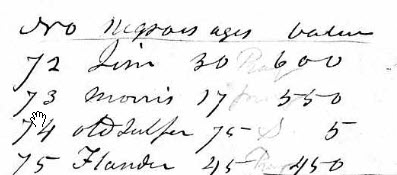 No Negroes ages Value
72 Jim 30 600
73 Morris 17 550
74 old Sulfer 75 5
75 Flander 45 450